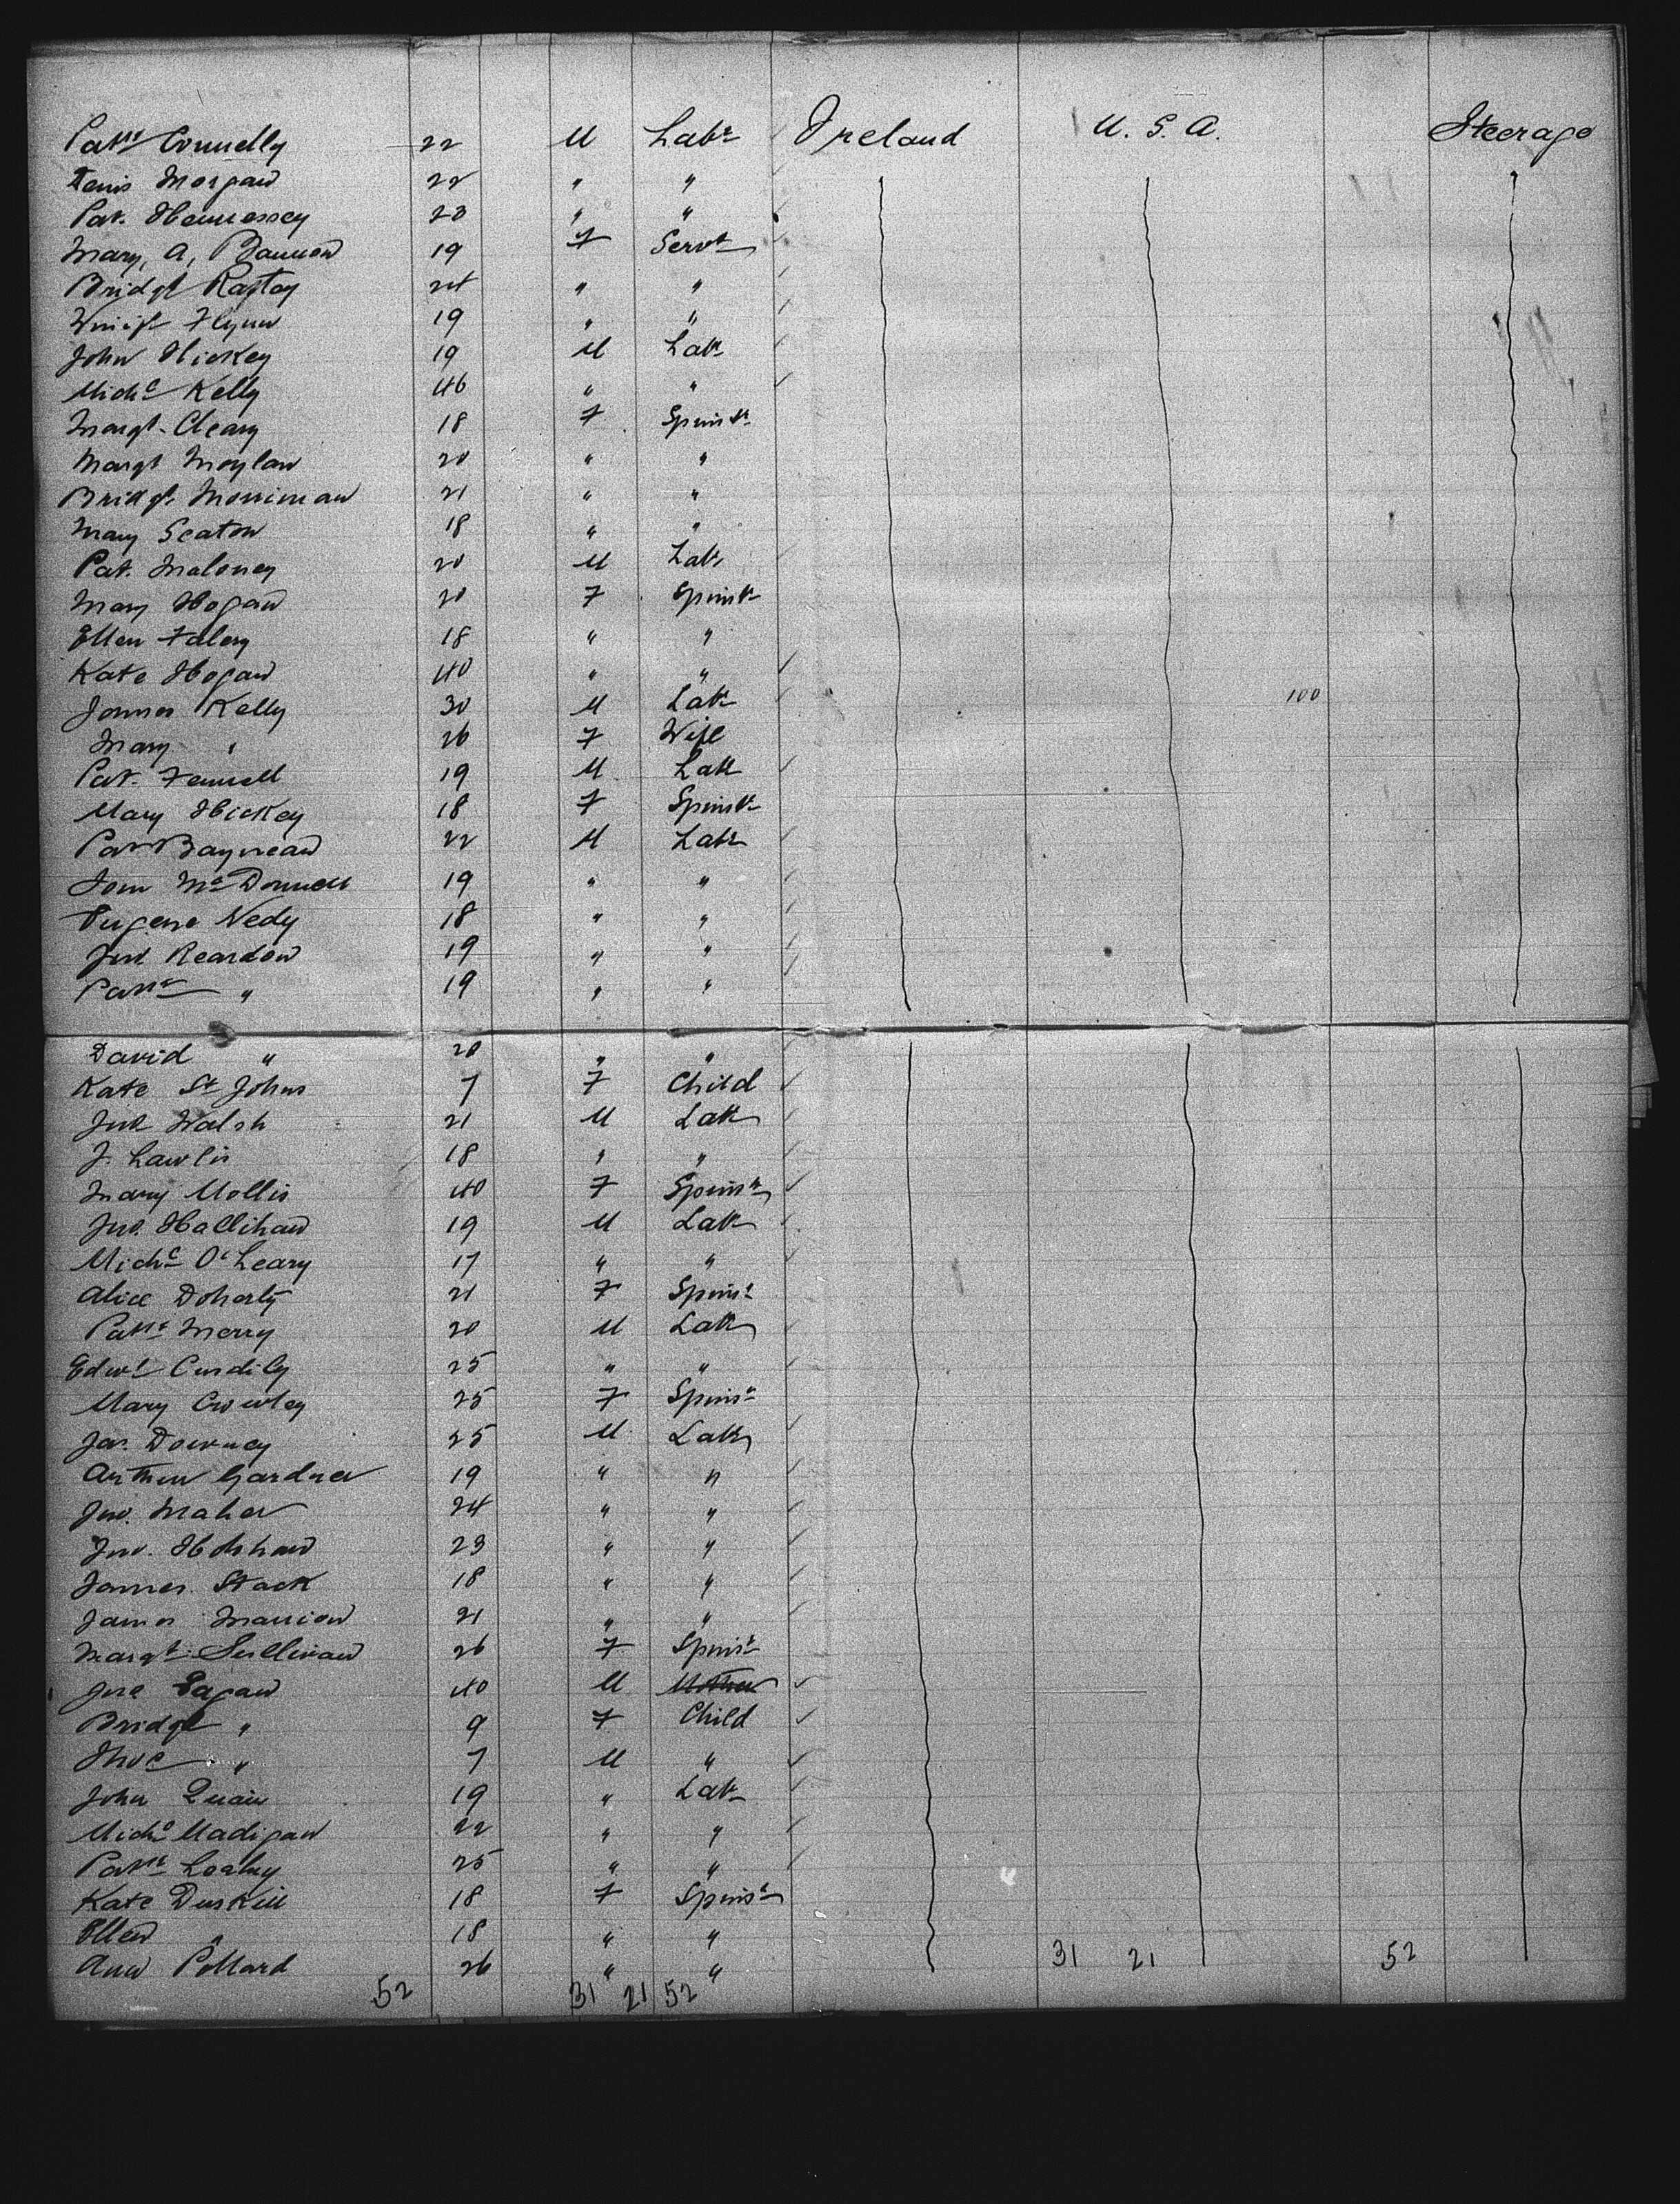 Patk Connelly 22 M Labr Ireland U. S. A. Steerage
Denis Morgan 22 " "
Pat. Hennessey 23 " "
Mary, A, Bannon 19 F Servt
Bridgt 24 " "
Winift Flynn 19 " "
John Hickey 19 M Labr
Michl Kelly 46 " "
Margt Cleary 18 F Spinstr
Margt Moylan 20 " "
Bridgt Merriman 21 " "
Mary Seaton 18 " "
Pat. Maloney 20 M Labr
Mary Hogan 20 F Spinstr
Ellen Foley 18 " "
Kate Hogan 40 " "
James Kelly 30 M Labr 100
Mary " 26 F Wife
Pat. Fennell 19 M Labr
Mary Hickey 18 F Spinstr
Pat 22 M Labr
Tom McDonnell 19 " "
Eugene Nedy 18 " "
Jno Reardon 19 " "
Patk " 19 " "
David " 20 " "
Kate St Johns 7 F Child
Jno Walsh 21 M Labr
J. Lawlis 18 " "
Mary Mollis 40 F Spinstr
Jno. Hallihan 19 M Labr
Michl O'Leary 17 " "
Alice Doherty 21 F Spinsr
Patk Merry 20 M Labr
Edwd 25 " "
Mary Crowley 25 F Spinsr
Jas. Downey 25 M Labr
Arthur Gardner 19 " "
Jno. Maher 24 " "
Jno. 23 " "
James Stack 18 " "
James Mannion 21 " "
Margt Sullivan 26 F Spinsr
Jno Eagan 40 M Mother
Bridgt " 9 F Child
Thos " 7 M "
John Quain 19 " Labr
Michl Madigan 22 " "
Patk Leahy 25 " "
Kate Duskill 18 F Spinsr
Ellen " 18 " "
Ann Pollard 26 " " 31 21 52
52 31 21 52